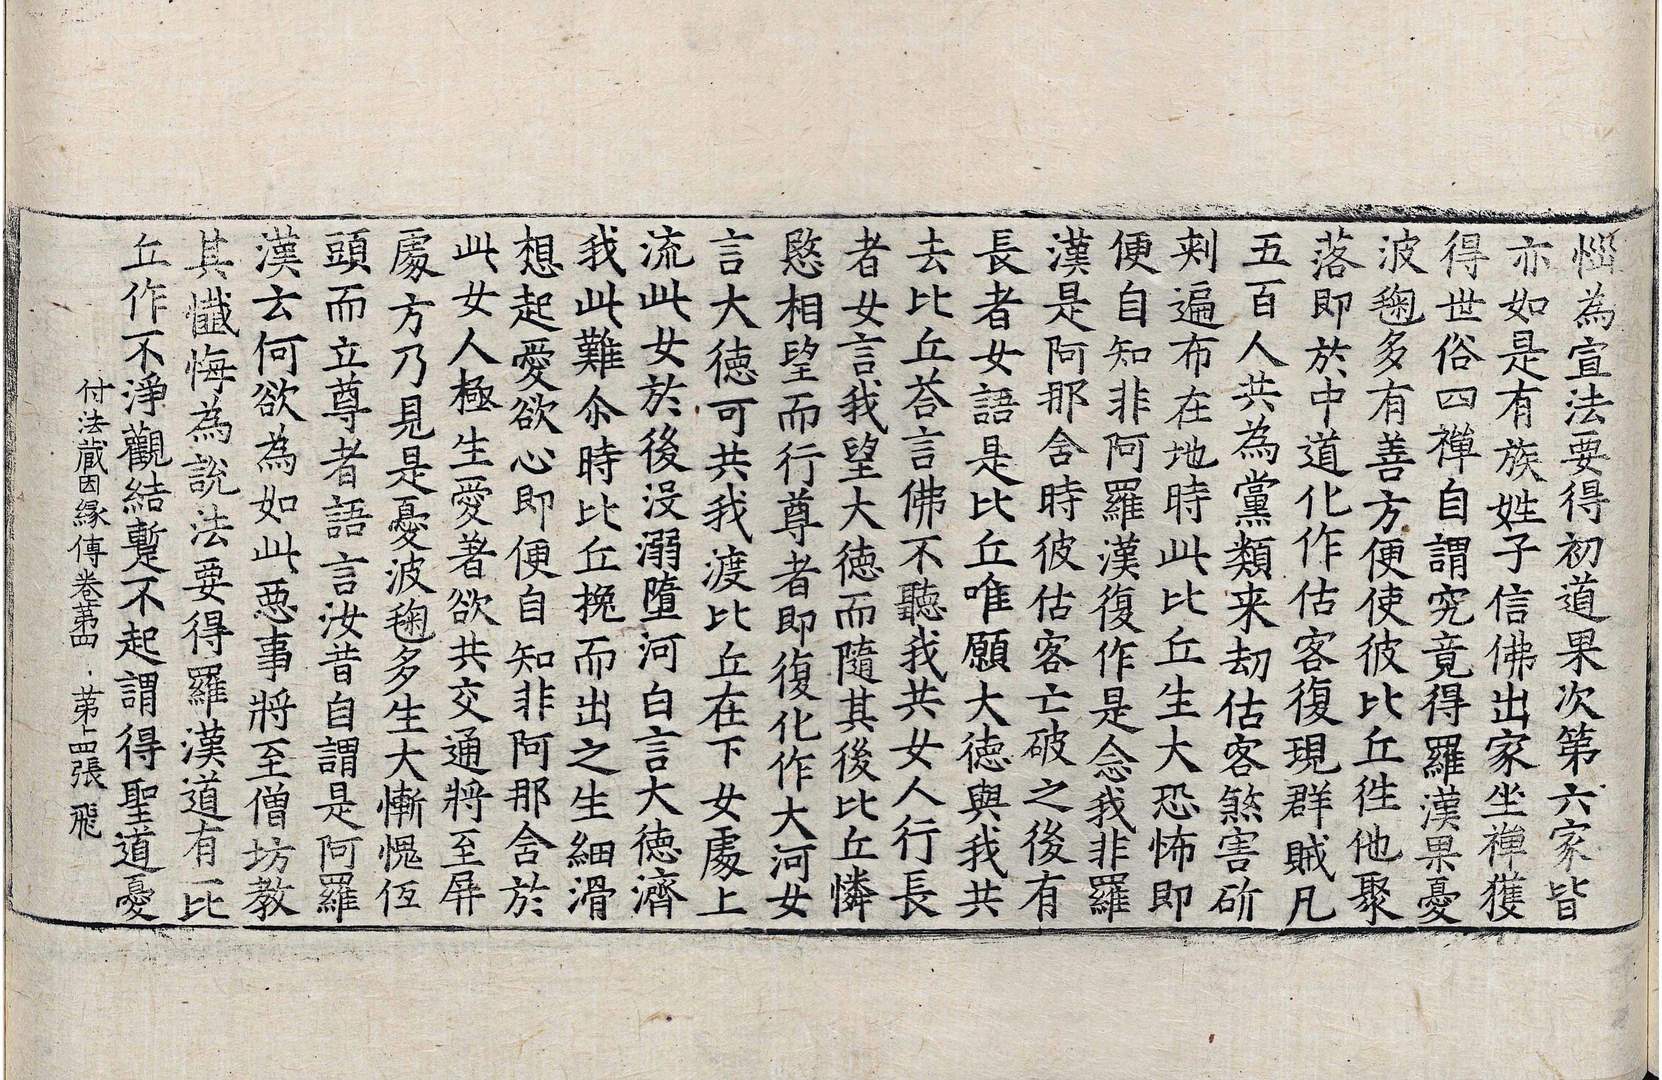 惱為宣法要得初道果次第六家皆
亦如是有族姓子信佛出家坐禅獲
得世俗四禅自謂究竟得羅漢果憂
波毱多有善方便使彼比丘徃他聚
落即於中道化作估客復現群賊凡
五百人共為黨類来刼估客煞害斫
刾遍布在地時此比丘生大恐怖即
便自知非阿羅漢復作是念我非羅
漢是阿那舍時彼估客亡破之後有
長者女語是比丘唯願大徳與我共
去比丘荅言佛不聽我共女人行長
者女言我望大徳而隨其後比丘憐
愍相望而行尊者即復化作大河女
言大徳可共我渡比丘在下女處上
流此女於後没溺墮河白言大徳濟
我此難尒時比丘挽而出之生細滑
想起愛欲心即便自知非阿那舍於
此女人極生愛著欲共交通將至屏
處方乃見是憂波毱多生大慚愧仾
頭而立尊者語言汝昔自謂是阿羅
漢去何欲為如此惡事將至僧坊教
其懺悔為說法要得羅漢道有一比
丘作不淨觀結蹔不起謂得聖道憂
付法藏因緣傳卷苐四 苐四張 飛